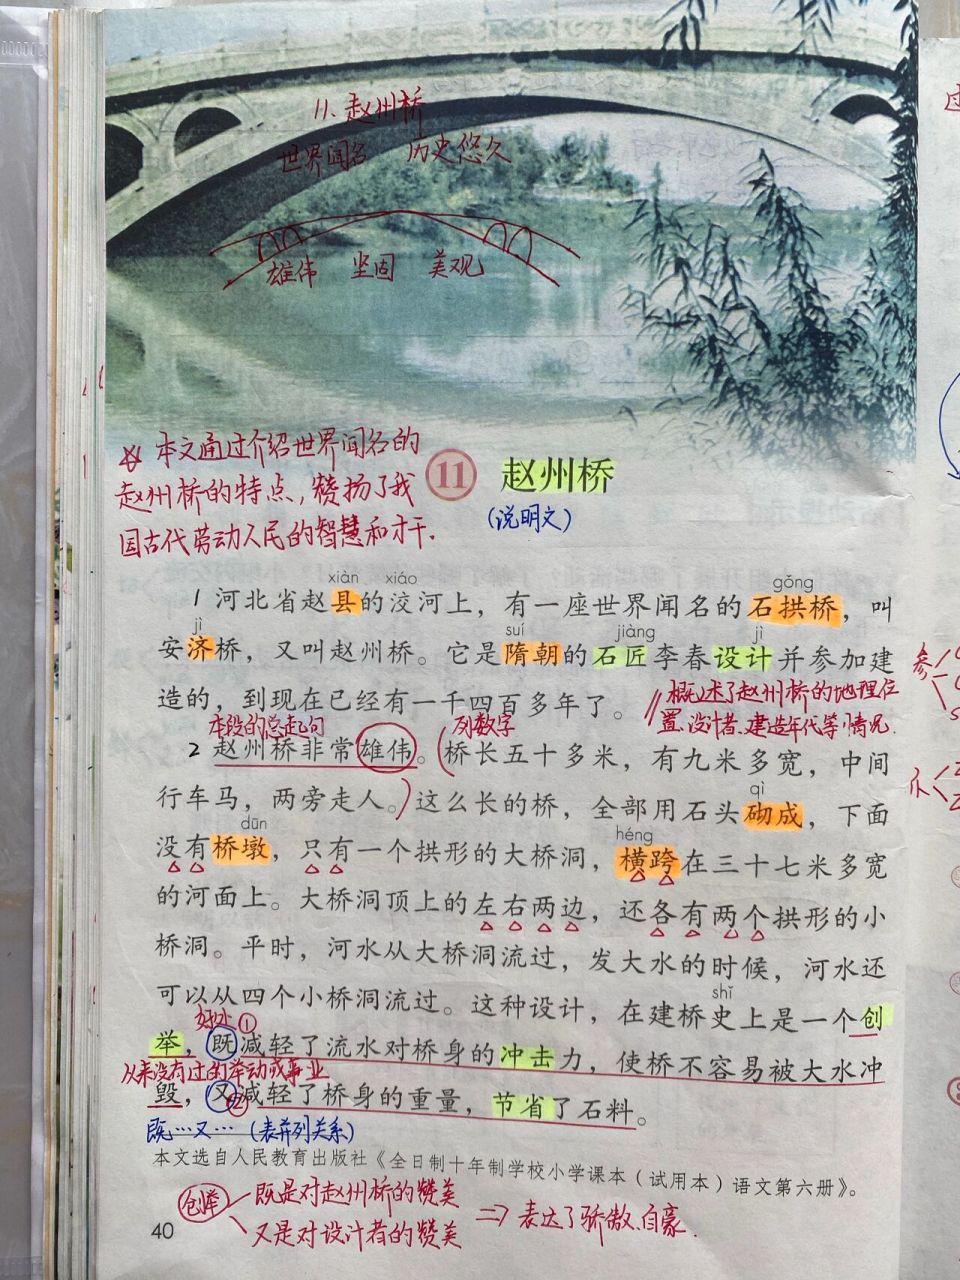 11.赵州桥
世界闻名 历史悠久
雄伟 坚固 美观
本文通过介绍世界闻名的
赵州桥的特点,赞扬了我
国古代劳动人民的智慧和才干.
11 赵州桥
(说明文)
xiàn xiáo gǒng
1 河北省赵县的洨河上，有一座世界闻名的石拱桥，叫
jì suí jiàng jì
安济桥，又叫赵州桥。它是隋朝的石匠李春设计并参加建
造的，到现在已经有一千四百多年了。
概述了赵州桥的地理位
置、设计者、建造年代等情况.
本段的总起句 列数字
2 赵州桥非常雄伟。(桥长五十多米，有九米多宽，中间
qì
行车马，两旁走人。)这么长的桥，全部用石头砌成，下面
dūn héng
没有桥墩，只有一个拱形的大桥洞，横跨在三十七米多宽
的河面上。大桥洞顶上的左右两边，还各有两个拱形的小
桥洞。平时，河水从大桥洞流过，发大水的时候，河水还
shǐ
可以从四个小桥洞流过。这种设计，在建桥史上是一个创
好处①
举，既减轻了流水对桥身的冲击力，使桥不容易被大水冲
从来没有过的举动或事业
②
毁，又减轻了桥身的重量，节省了石料。
既…又…(表并列关系)
本文选自人民教育出版社《全日制十年制学校小学课本（试用本）语文第六册》。
创举
既是对赵州桥的赞美
又是对设计者的赞美
⇒ 表达了骄傲、自豪.
40